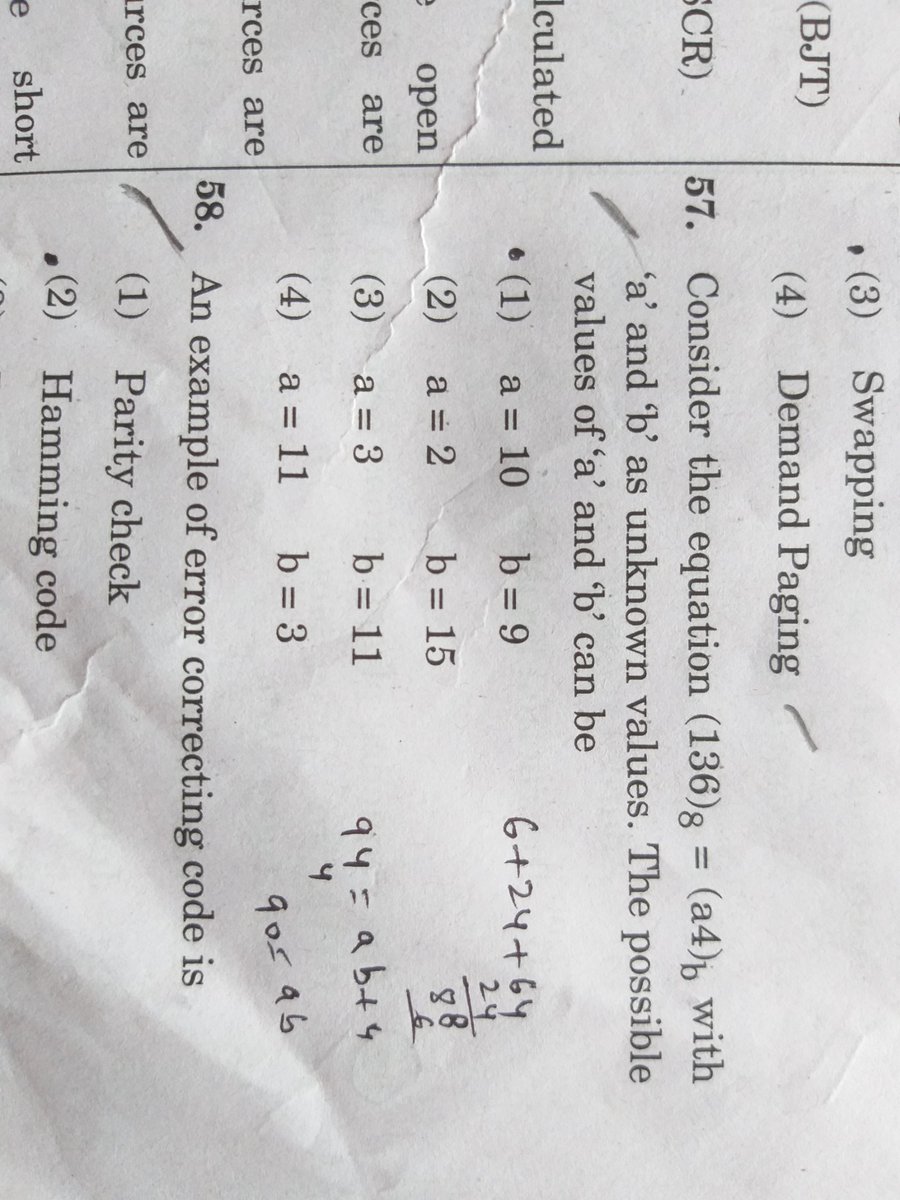 (BJT)
SCR)
lculated
open
ces are
rces are
urces are
e short
(3) Swapping
(4) Demand Paging
57. Consider the equation (136)8 = (a4)b with
'a' and 'b' as unknown values. The possible
values of 'a' and 'b' can be
(1) a = 10 b = 9
(2) a = 2 b = 15
(3) a = 3 b = 11
(4) a = 11 b = 3
6+24+64
24
88
6
94 = ab+4
4
90 = ab
58. An example of error correcting code is
(1) Parity check
(2) Hamming code